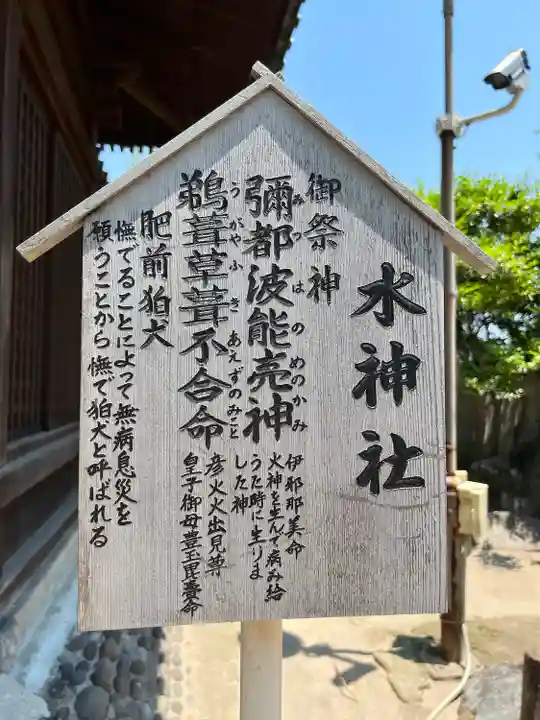 水神社
御祭神
彌都波能売神
みつはのめのかみ
伊邪那美命
火神を生んで病み給
うた時に生りま
した神
鵜葺草葺不合命
うがやふきあえずのみこと
彦火火出見尊
皇子御母豊玉毘賣命
肥前狛犬
撫でることによって無病息災を
願うことから撫で狛犬と呼ばれる